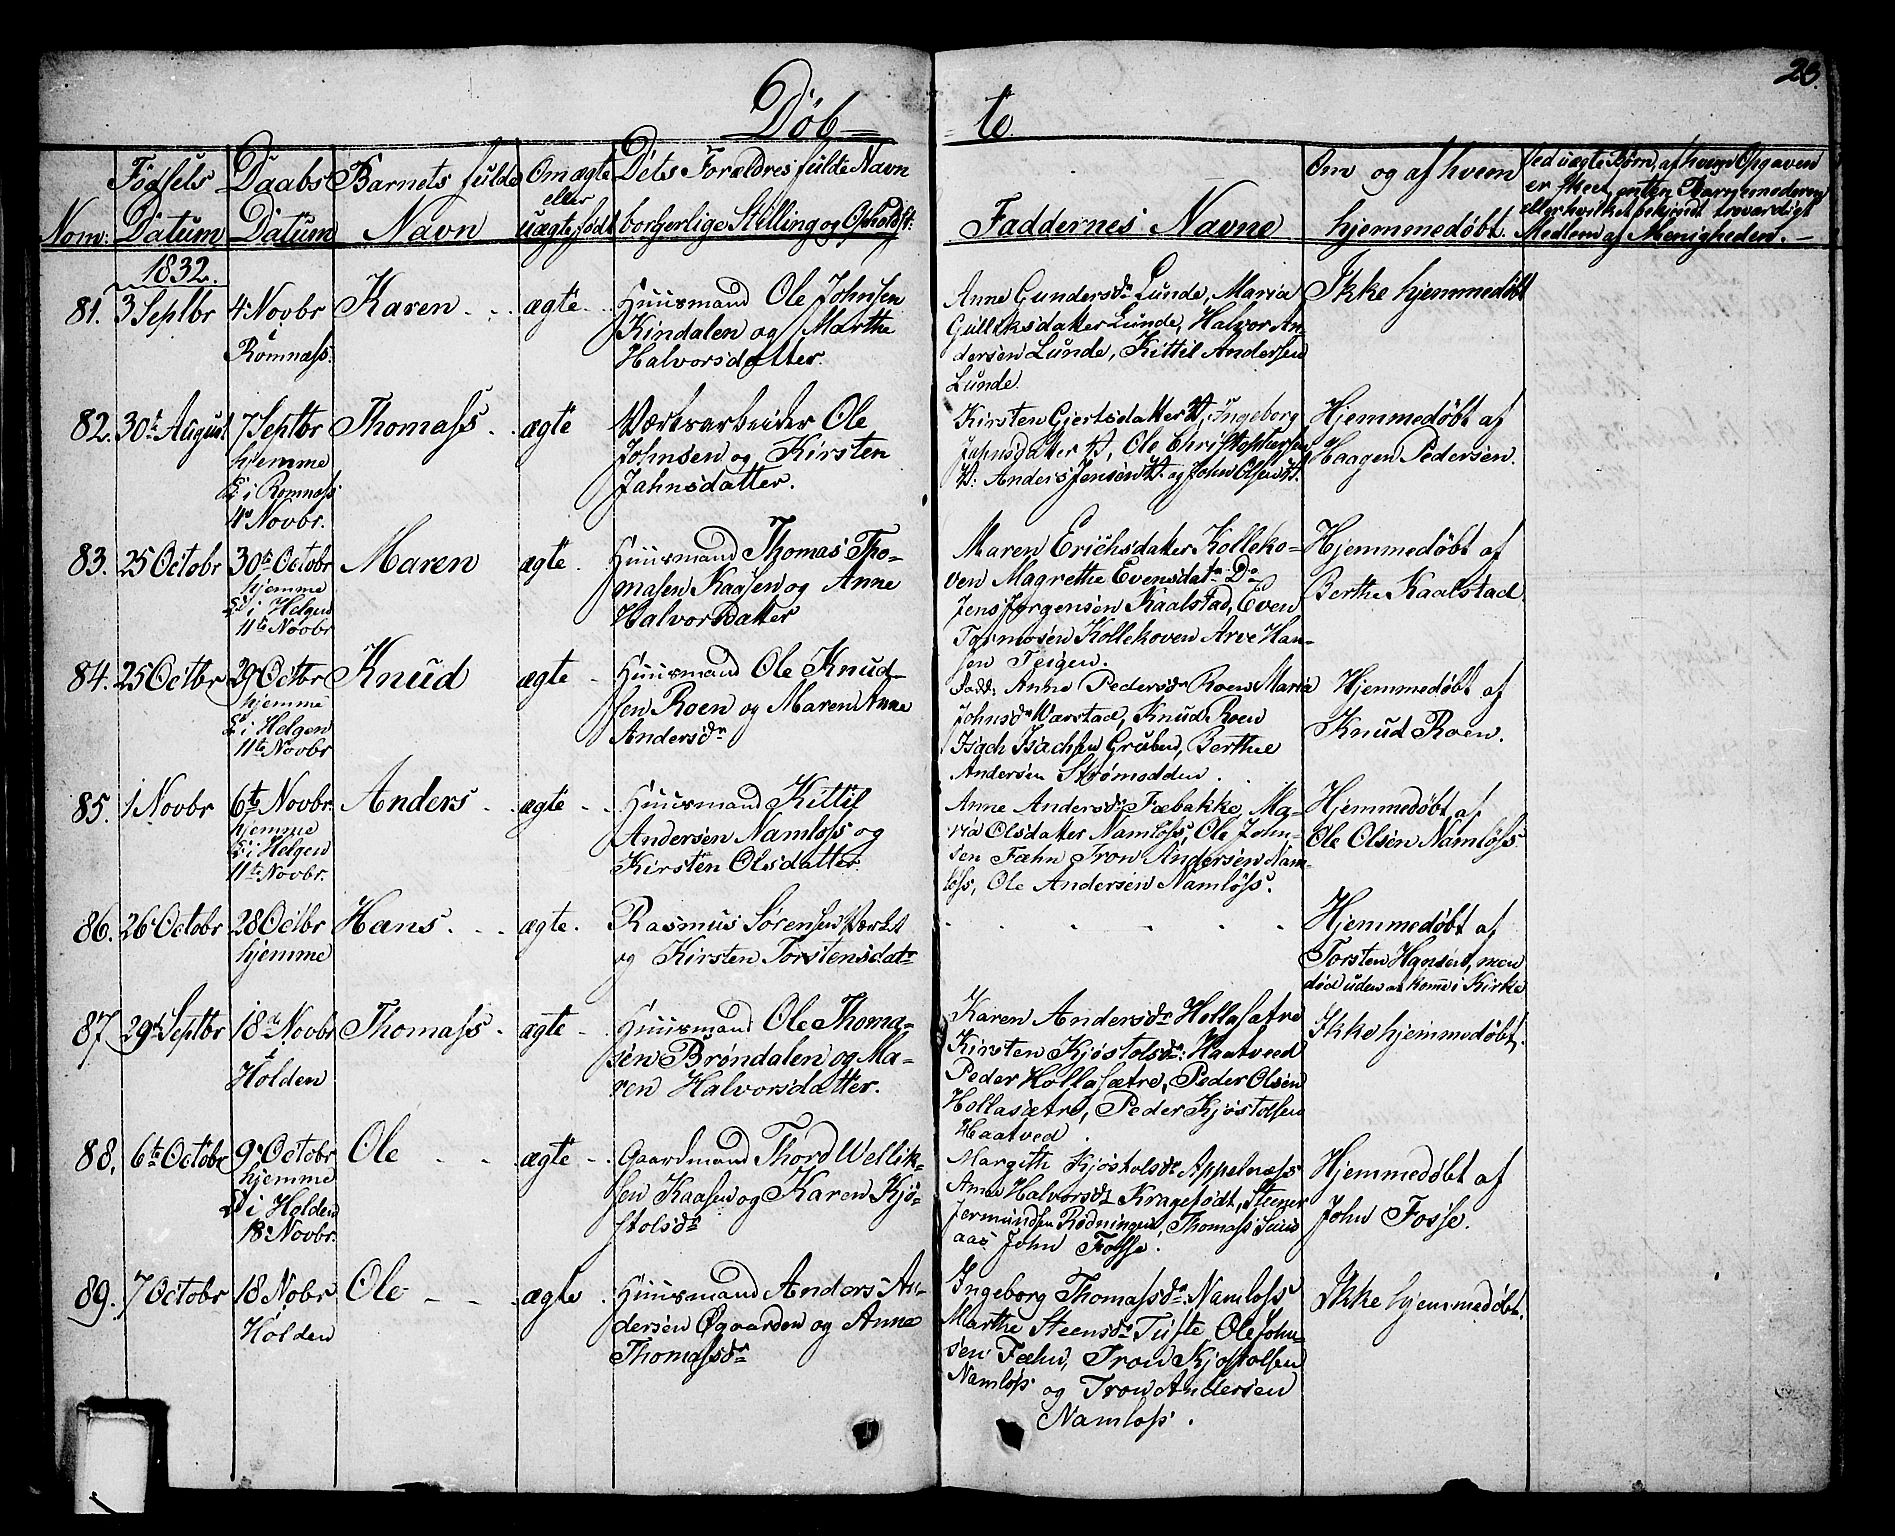 Døb= =te.
28.
Nom: Fødsels Datum
Daabs Datum
Barnets fulde Navn
Om ægte eller uægte født
Dets Forældres fulde Navn
borgerlige Stilling og Opholdst:
Faddernes Navne
Om og af hvem
hjemmedøbt.
Ved uægte Børn, af hvem Opgaven
er skeet, enten Barnemoderen
eller hvilket bekjendt troværdigt
Medlem af Menigheden. —
1832.
81. 3 Septbr
4 Novbr
i
Romnæss:
Karen
ægte
Huusmand Ole Johnsen
Kindalen og Marthe
Halvorsdatter.
Anne Gundersdr Lunde, Maria
Gulliksdatter Lunde, Halvor An
dersen Lunde, Kittil Andersen
Lunde.
Ikke hjemmedøbt
82. 30t August
7 Septbr
hjemme
i Romnæss
4 Novbr.
Thomass
ægte
Værksarbeider Ole
Johnsen og Kirsten
Jahnsdatter.
Kirsten Gjertsdatter V, Ingeborg
Jahnsdatter V, Ole Christophersen
V: Anders Jensen V. og John Olsen V.
Hjemmedøbt af
Haagen Pedersen.
83. 25 Octobr
30te Octobr
hjemme
i Helgen
11te Novbr
Maren
ægte
Huusmand Thomas Tho=
masen Kaasen og Anne
Halvorsdatter
Maren Erichsdatter Kolleko=
ven Magrethe Evensdatr Do
Jens Jørgensen Kaalstad, Even
Tormosen Kollekoven Arve Han=
sen Teigen.
Hjemmedøbt af
Berthe Kaalstad.
84. 25 Octbr
29 Octbr
hjemme
i Helgen
11te Novbr
Knud
ægte
Huusmand Ole Knud=
sen Roen og Maren Anne
Andersdr
Fadd: Anne Pedersdr Roen Maria
Johnsdr Værstad, Knud Roen
Isach Isachsen Gruben, Berthe
Andersen Strømodden.
Hjemmedøbt af
Knud Roen.
85. 1 Novbr
6te Novbr.
hjemme
i Helgen
11te Novbr.
Anders
ægte
Huusmand Kittil
Andersen Namløss og
Kirsten Olsdatter
Anne Andersdr Fæbakke, Ma=
ria Olsdatter Namløss, Ole John=
sen Fæhn Tron Andersen Nam=
løss, Ole Andersen Namløss.
Hjemmedøbt af
Ole Olsen Namløss
86. 26 Octobr
28 Octbr
hjemme
Hans
ægte.
Rasmus Sørensen Værket
og Kirsten Torstensdatr
Hjemmedøbt af
Torsten Hansen, men
død uden at komme i Kirke
87. 29d Septbr
18d Novbr
i
Holden
Thomass
ægte
Huusmand Ole Thoma=
sen Brøndalen og Ma=
ren Halvorsdatter.
Karen Andersdr Hollasætre
Kirsten Kjøstolsdr: Haatveed
Peder Hollasætre, Peder Olsen
Hollasætre, Peder Kjøstolsen
Haatved.
Ikke hjemmedøbt.
88. 6te Octobr
9 Octobr
hjemme
i Holden
18 Novbr.
Ole
ægte
Gaardmand Thord Wellik=
sen Kaasen og Karen Kjø=
stolsdr
Margith Kjøstolsdr Appelnæss
Anne Halvorsdr Kragefødt, Steener
Jermundsen Rødningen, Thomass
aas John Fosse.
Hjemmedøbt af
John Fosse.
89. 7 Octobr
18 Nobr
Holden
Ole
ægte
Huusmand Anders An=
dersen Øgaarden og Anne
Thomassdr
Ingeborg Thomassdr: Namløss
Marthe Steensdr Tufte, Ole John=
sen Fæhn, Tron Kjøstolsen
Namløss og Tron Andersen
Namløss.
Ikke hjemmedøbt.